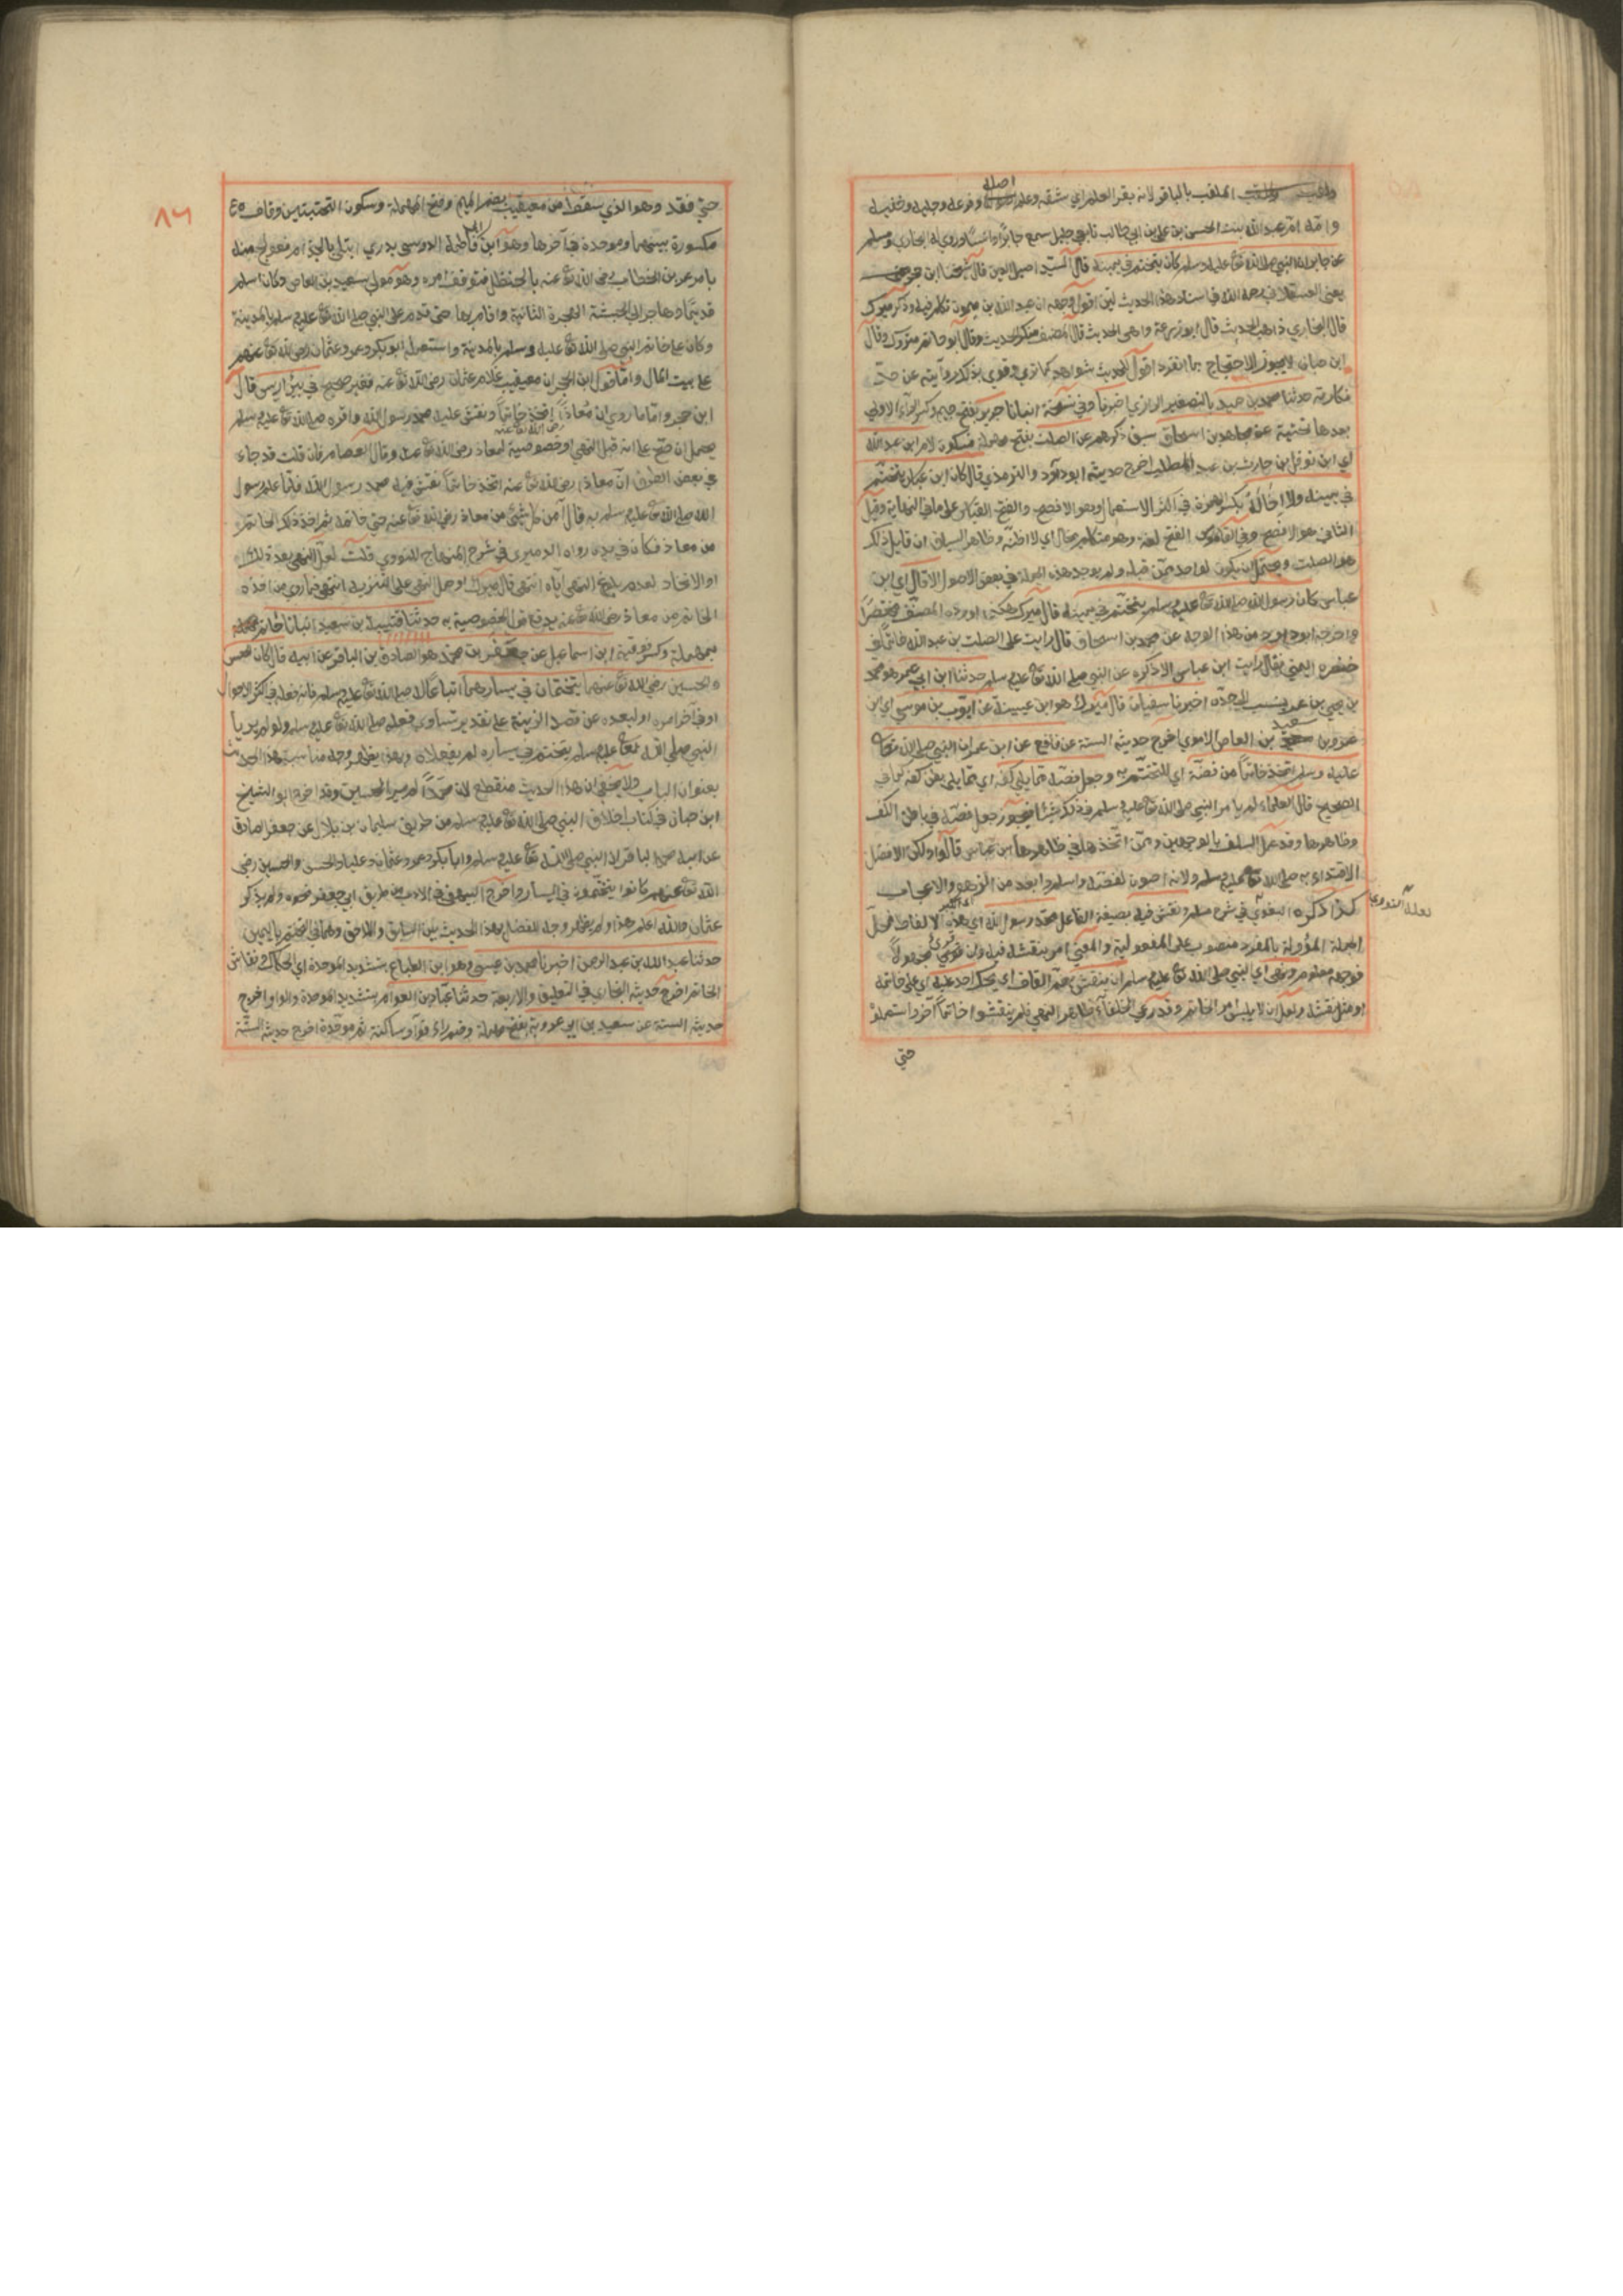 الملقب بالباقر لانه بقر العلم اي شقه وعلم اصله وفرعه وجليه وخفيه
وامه ام عبد الله بنت الحسن بن علي بن ابي طالب تابعي جليل سمع جابرا وانسا وروي له البخاري ومسلم
عن جابر ان النبي صلى الله تع عليه وسلم كان يتختم في يمينه قال السيد اصيل الدين قال شيخنا ابن حجر
يعني العسقلاني رحمه الله في اسناد هذا الحديث لين اقول وجهه ان عبد الله بن ميمون تكلم فيه وذكر ميرك
قال البخاري ذاهب الحديث قال ابو زرعة واهي الحديث قال المصنف منكر الحديث وقال ابو حاتم متروك وقال
ابن حبان لا يجوز الاحتجاج بما انفرد اقول للحديث شواهد كما تري وقوي بذكر روايته عن حد
نكارته حدثنا محمد بن حميد بالتصغير الرازي اخبرنا وفي نسخة انبانا جرير بفتح جيم وكسر الراء الاولي
بعدها تحتية عن محمد بن اسحاق سبق ذكرهم عن الصلت بفتح مهملة فسكون لام ابن عبد الله
اي ابن نوفل بن حارث بن عبد المطلب اخرج حديثه ابو داود والترمذي قال كان ابن عباس يتختم
في يمينه ولا اخاله بكسر الهمزة في اكثر الاستعمال وهو الافصح والفتح القياس على ما في النهاية وقيل
الثاني هو الافصح وفي القاموس الفتح لغة وهو متكلم يخال اي لا اظنه وظاهر السياق ان قايل ذلك
هو الصلت ويحتمل ان يكون لواحد ممن قبله ولم يوجد هذه الجملة في بعض الاصول الا قال اي ابن
عباس كان رسول الله صلى الله تع عليه وسلم يتختم في يمينه قال ميرك هكذا اورده المصنف مختصرا
واخرجه ابو داود من هذا الوجه عن محمد بن اسحاق قال رايت على الصلت بن عبد الله خاتما في
خنصره اليمني فقال رايت ابن عباس الا ذكره عن النبي صلى الله تع عليه وسلم حدثنا ابن ابي عمر وهو محمد
بن يحيي بن عمر ينسب الي جده اخبرنا سفيان قال ميرك هو ابن عيينة عن ايوب بن موسي اي ابن
عمرو بن سعيد بن العاص الاموي اخرج حديثه الستة عن نافع عن ابن عمر ان النبي صلى الله تع
عليه وسلم اتخذ خاتما من فضة اي للتختم به وجعل فصه مما يلي كفه اي مما يلي بطن كفه كما في
الصحيح قال العلماء لم يامر النبي صلى الله تع عليه وسلم في ذلك بشئ فيجوز جعل فصه في باطن الكف
وظاهرها وقد عمل السلف بالوجهين وممن اتخذها في ظاهرها ابن عباس قالوا ولكن الافضل
الاقتداء به صلى الله تع عليه وسلم ولانه اصون لفصه واسلم وابعد من الزهو والاعجاب
كذا ذكره البغوي في شرح مسلم ونقش فيه بصيغة الفاعل محمد رسول الله اي هذه الالفاظ فمحل
لعله النووي
الجملة المؤولة بالمفرد منصوب على المفعولية والمعني امر بنقشه فيه وان قري مجهولا
فوجهه معلوم ونهي اي النبي صلى الله تع عليه وسلم ان ينقش بضم القاف اي يحك احد عليه اي على خاتمه
او مثل نقشه ولعل ان لا يلبس امر الخاتم وقد راعي الخلفاء ظاهر النهي فلم ينقشوا خاتما اخر واستعملوا
حتي
٨٦
حتي فقد وهو الذي سقط من معيقيب بضم الميم وفتح المهملة وسكون التحتيتين وقاف
مكسورة بينهما وموحدة في آخرها وهو ابن ابي فاطمة الدوسي بدري ابتلي بالجذام فعولج منه
بامر عمر بن الخطاب رضي الله تع عنه بالحنظل فتوقف امره وهو مولي سعيد بن العاص وكان اسلم
قديما وهاجر الي الحبشة الهجرة الثانية واقام بها حتى قدم على النبي صلى الله تع عليه وسلم بالمدينة
وكان على خاتم النبي صلى الله تع عليه وسلم بالمدينة واستعمله ابو بكر وعمر وعثمان رضي الله تع عنهم
على بيت المال واما قول ابن حجر ان معيقيب غلام عثمان رضي الله تع عنه فغير صحيح في بئر اريس قال
ابن حجر واما ما روي ان معاذا رضي الله تع عنه اتخذ خاتما ونقش عليه محمد رسول الله واقره صلى الله تع عليه وسلم
يحمل ان صح على انه قبل النهي او خصوصية لمعاذ رضي الله تع عنه وقال العصام فان قلت قد جاء
في بعض الطرق ان معاذا رضي الله تع عنه اتخذ خاتما نقش فيه محمد رسول الله فلما علم رسول
الله صلى الله تع عليه وسلم به قال امن كل شئ من معاذ رضي الله تع عنه حتي خاتمه ثم اخذ ذلك الخاتم
من معاذ فكان في يده رواه الدميري في شرح المنهاج للنووي قلت لعل النهي بعد ذلك
او الاتخاذ لعدم بلوغ النهي اياه انتهي قال ميرك او حمل النهي على التنزيه انتهي فما روي من اخذه
الخاتم من معاذ رضي الله تع عنه يدفع الخصوصية به حدثنا قتيبة بن سعيد انبانا حاتم
بمهملة وكسر فوقية ابن اسماعيل عن جعفر بن محمد هو الصادق بن الباقر عن ابيه قال كان الحسن
والحسين رضي الله تع عنهما يتختمان في يسارهما اتباعا لا صلى الله تع عليه وسلم فانه فعله في اكثر الاحوال
او في آخر امره او لبعده عن قصد الزينة على تقدير تساوي فعله صلى الله تع عليه وسلم ولو لم يريا
النبي صلى الله تع عليه وسلم يتختم في يساره لم يفعلاه وبهذا يظهر وجه مناسبة هذا الحديث
بعنوان الباب ولا يخفي ان هذا الحديث منقطع لان محمدا لم ير الحسين وقد اخرج ابو الشيخ
ابن حبان في كتاب اخلاق النبي صلى الله تع عليه وسلم من طريق سليمان بن بلال عن جعفر الصادق
عن ابيه محمد الباقر ان النبي صلى الله تع عليه وسلم وابا بكر وعمر وعثمان وعليا والحسن والحسين رضي
الله تع عنهم كانوا يتختمون في اليسار واخرج البيهقي في الادب من طريق ابي جعفر نحوه ولم يذكر
عثمان والله اعلم هذا ولم يظهر وجه للفصل بهذا الحديث بين السابق واللاحق وهما في التختم باليمين
حدثنا عبد الله بن عبد الرحمن اخبرنا محمد بن عيسي وهو ابن الطباع بتشديد الموحدة اي الحكاك ونقاش
الخاتم اخرج حديثه البخاري في التعليق والاربعة حدثنا عباد بن العوام بتشديد الموحدة والواو اخرج
حديثه الستة عن سعيد بن ابي عروبة بفتح مهملة وضم راء فواو ساكنة ثم موحدة اخرج حديثه الستة